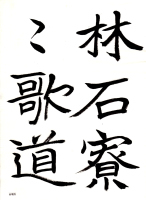 林石寮
〻歌道